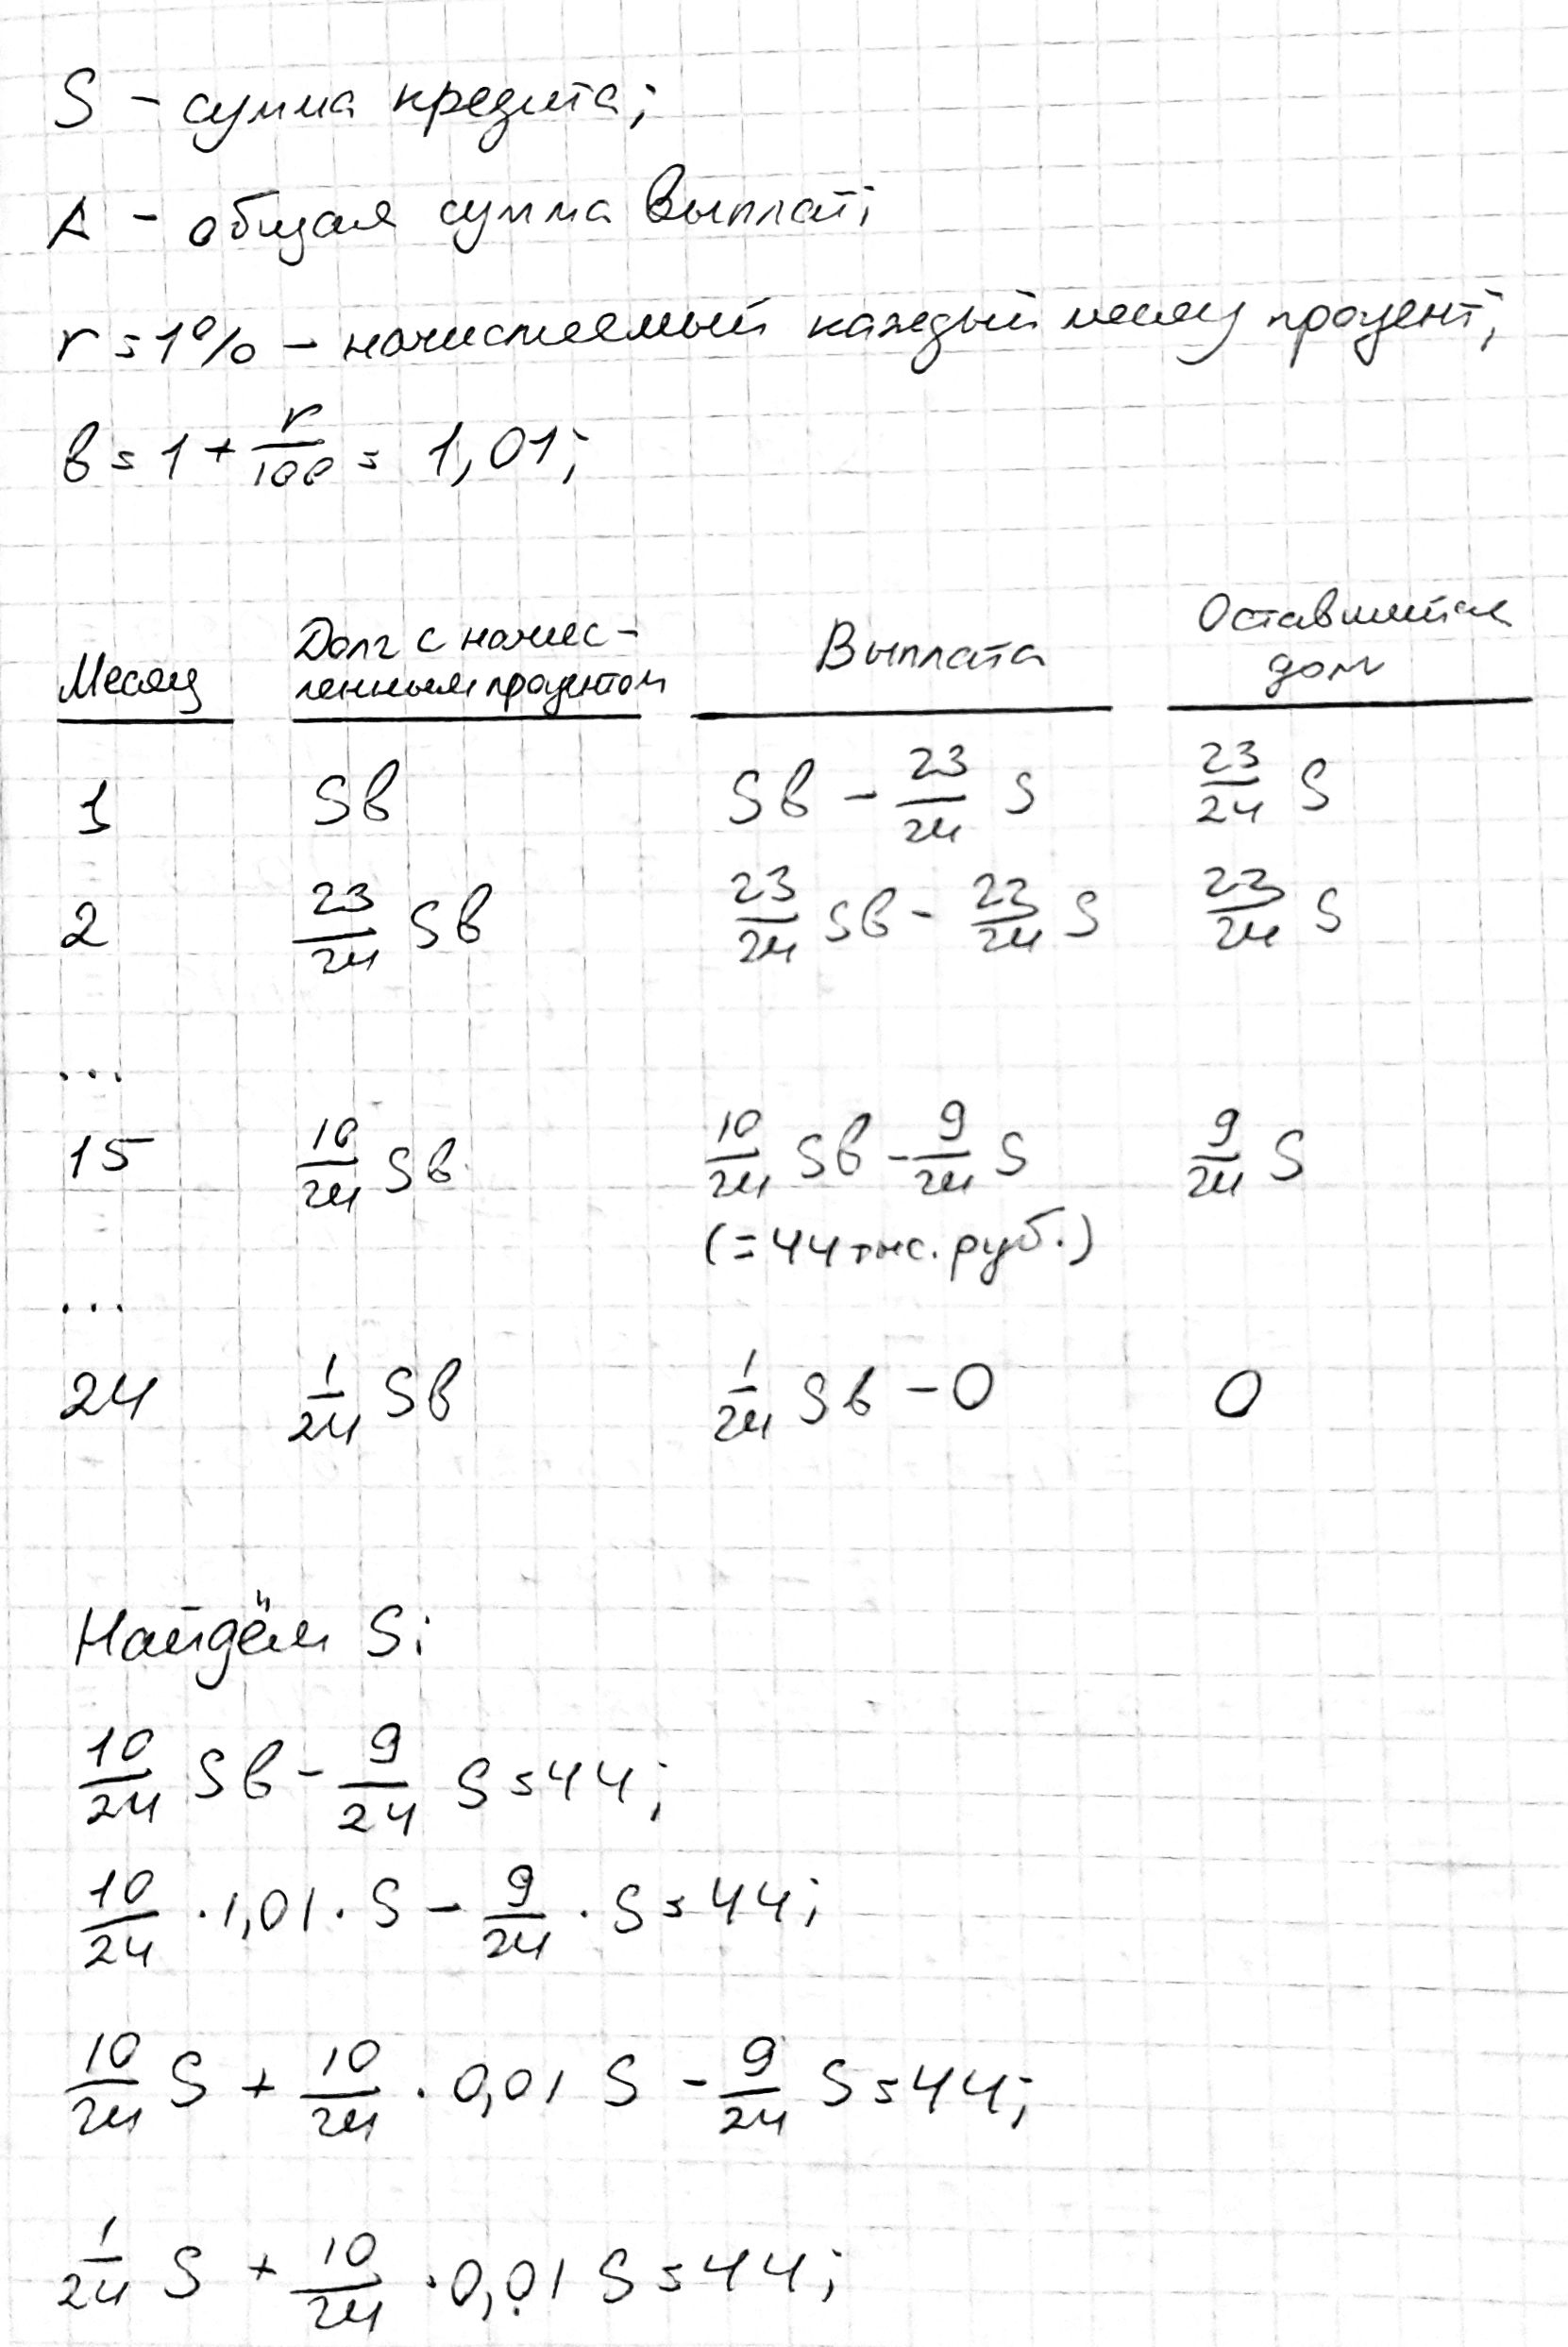 S – сумма кредита;
A – общая сумма выплат;
r = 1% – начисляемый каждый месяц процент;
b = 1 + r/100 = 1,01;
Месяц | Долг с начис-ленным процентом | Выплата | Оставшийся долг
1 | Sb | Sb – 23/24 S | 23/24 S
2 | 23/24 Sb | 23/24 Sb – 23/24 S | 23/24 S
...
15 | 10/24 Sb | 10/24 Sb – 9/24 S | 9/24 S
(= 44 тыс. руб.)
...
24 | 1/24 Sb | 1/24 Sb – 0 | 0
Найдём S:
10/24 Sb – 9/24 S = 44;
10/24 · 1,01 · S – 9/24 · S = 44;
10/24 S + 10/24 · 0,01 S – 9/24 S = 44;
1/24 S + 10/24 · 0,01 S = 44;